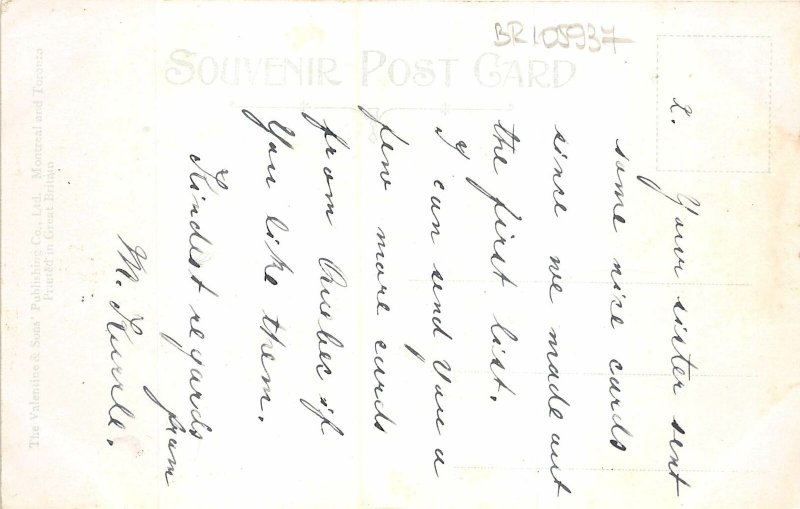 BR105937
SOUVENIR POST CARD
2.
Your sister sent
some nice cards
since we made out
the first list.
I can send you a
few more cards
from Quebec if
You like them.
Kindest regards
from
M.
The Valentine & Sons' Publishing Co., Ltd. Montreal and Toronto
Printed in Great Britain